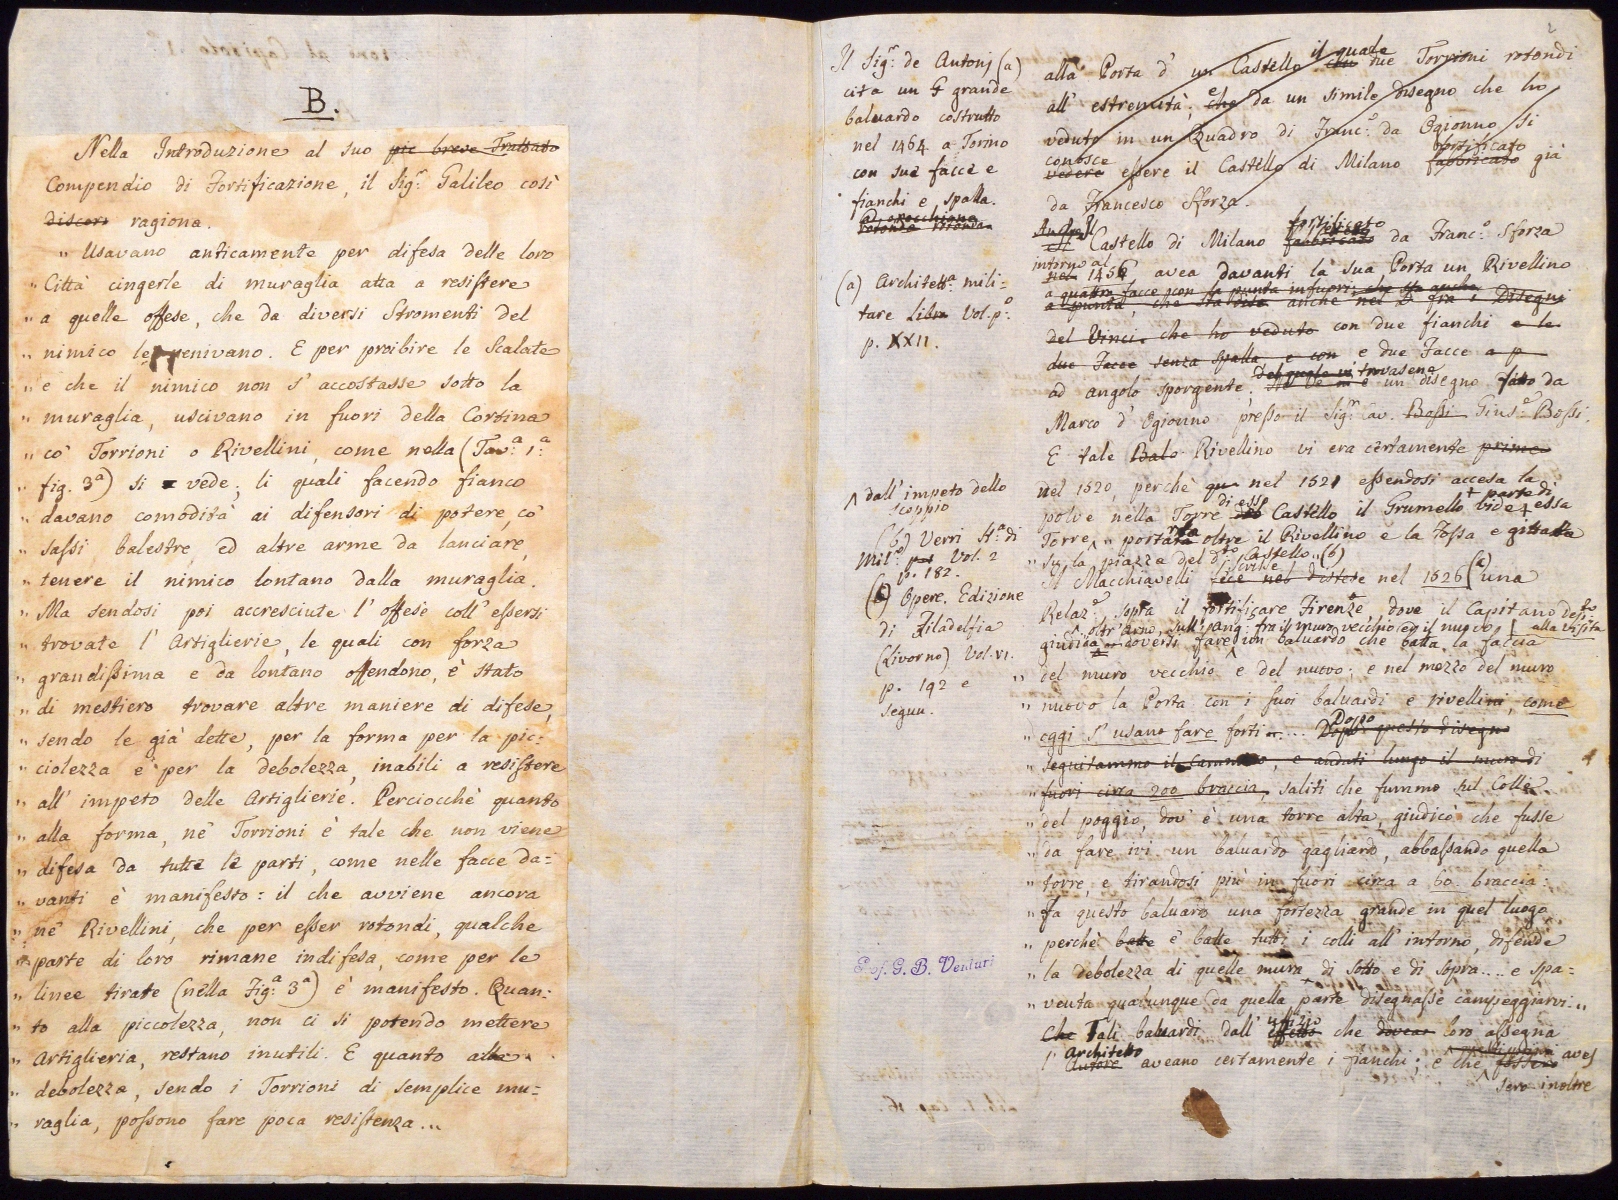 B.
Nella Introduzione al suo più breve Trattato
Compendio di Fortificazione, il Sig.r Galileo così
discorr ragiona.
" Usavano anticamente per difesa delle loro
" Città cingerle di muraglia atta a resistere
" a quelle offese, che da diversi Stromenti del
" nimico le venivano. E per proibire le Scalate
" e che il nimico non s' accostasse sotto la
" muraglia, uscivano in fuori della Cortina
" co' Torrioni o Rivellini, come nella (Tav.a 1.a
" fig. 3a) si vede; li quali facendo fianco
" davano comodità ai difensori di potere, co'
" sassi balestre, ed altre arme da lanciare,
" tenere il nimico lontano dalla muraglia.
" Ma sendosi poi accresciute l' offese coll' essersi
" trovate l' Artiglierie, le quali con forza
" grandissima e da lontano offendono, è stato
" di mestiero trovare altre maniere di difese,
" sendo le già dette, per la forma per la pic=
" ciolezza e per la debolezza, inabili a resistere
" all' impeto delle Artiglierie. Perciocchè quanto
" alla forma, ne' Torrioni è tale che non viene
" difesa da tutte le parti, come nelle facce da=
" vanti è manifesto: il che avviene ancora
" ne' Rivellini, che per esser rotondi, qualche
" parte di loro rimane indifesa, come per le
" linee tirate (nella Fig.a 3a) è manifesto. Quan=
" to alla piccolezza, non ci si potendo mettere
" Artiglieria, restano inutili. E quanto alla
" debolezza, sendo i Torrioni di semplice mu=
" raglia, possono fare poca resistenza...
Il Sig.r de Antonj (a)
cita un grande
baluardo costrutto
nel 1464 a Torino
con sue facce e
fianchi e spalla.
rotonda
(a) Architett.a mili=
tare Libro Vol. p.o
p. XXII.
dall' impeto dello
scoppio
(b) Verri St.a di
Mil.o Vol. 2
p. 182.
Opere. Edizione
di Filadelfia
(Livorno) Vol. VI.
p. 192 e
seguu.
Prof. G. B. Venturi
2
il quale
alla Porta d' un Castello due Torrioni rotondi
all' estremità; e che da un simile disegno che ho
veduto in un Quadro di Franc.o da Ogionno si
conosce fortificato
vedere essere il Castello di Milano fabbricato già
da Francesco Sforza.
fortificato
Il Castello di Milano fabbricato da Franc.o Sforza
intorno al
nel 1456, avea davanti la sua Porta un Rivellino
a quattro facce con la punta infuori; che sta anche
che sta anche nel fra i Disegni
del Vinci che ho veduto con due fianchi e le
due Facce senza spalla e con e due Facce a p
del quale vi trovasene
ad angolo sporgente; un disegno fatto da
Marco d' Ogionno presso il Sig.r av. Bossi Gius.e Bossi.
E tale Balo Rivellino vi era certamente prima
nel 1520, perchè qu nel 1521 essendosi accesa la
di esso + parte di
polve nella Torre Castello il Grumello vide essa
Torre " portata oltre il Rivellino e la Fossa e gittata
" su la piazza del d.to Castello " (b)
scrisse
Il Macchiavelli fece nel distese nel 1526 una
Relaz.e sopra il fortificare Firenze, dove il Capitano
oltr' Arno, sull' ang. fra il muro vecchio ed il nuovo alla visita
giudica doversi fare un baluardo che batta la faccia
" del muro vecchio e del nuovo; e nel mezzo del muro
" nuovo la Porta con i suoi baluardi e rivellini, come
" oggi s' usano fare forti .... Dopo questo disegno
" seguitammo il cammino, e andati lungo il muro di
" fuori circa 200 braccia, saliti che fummo sul Colle
" del poggio, dov' è una torre alta, giudicò che fusse
" da fare ivi un baluardo gagliardo, abbassando quella
" torre, e tirandosi più in fuori circa a 60. braccia:
" fa questo baluardo una fortezza grande in quel luogo
" perchè batte e batte tutti i colli all' intorno, difende
" la debolezza di quelle mura di sotto e di sopra .... e spa=
" venta qualunque da quella parte disegnasse campeggiarvi "
uffizio
Che Tali baluardi dall' effetto che loro assegna
Architetto
l' Autore aveano certamente i fianchi; e che fossero aves
sero inoltre